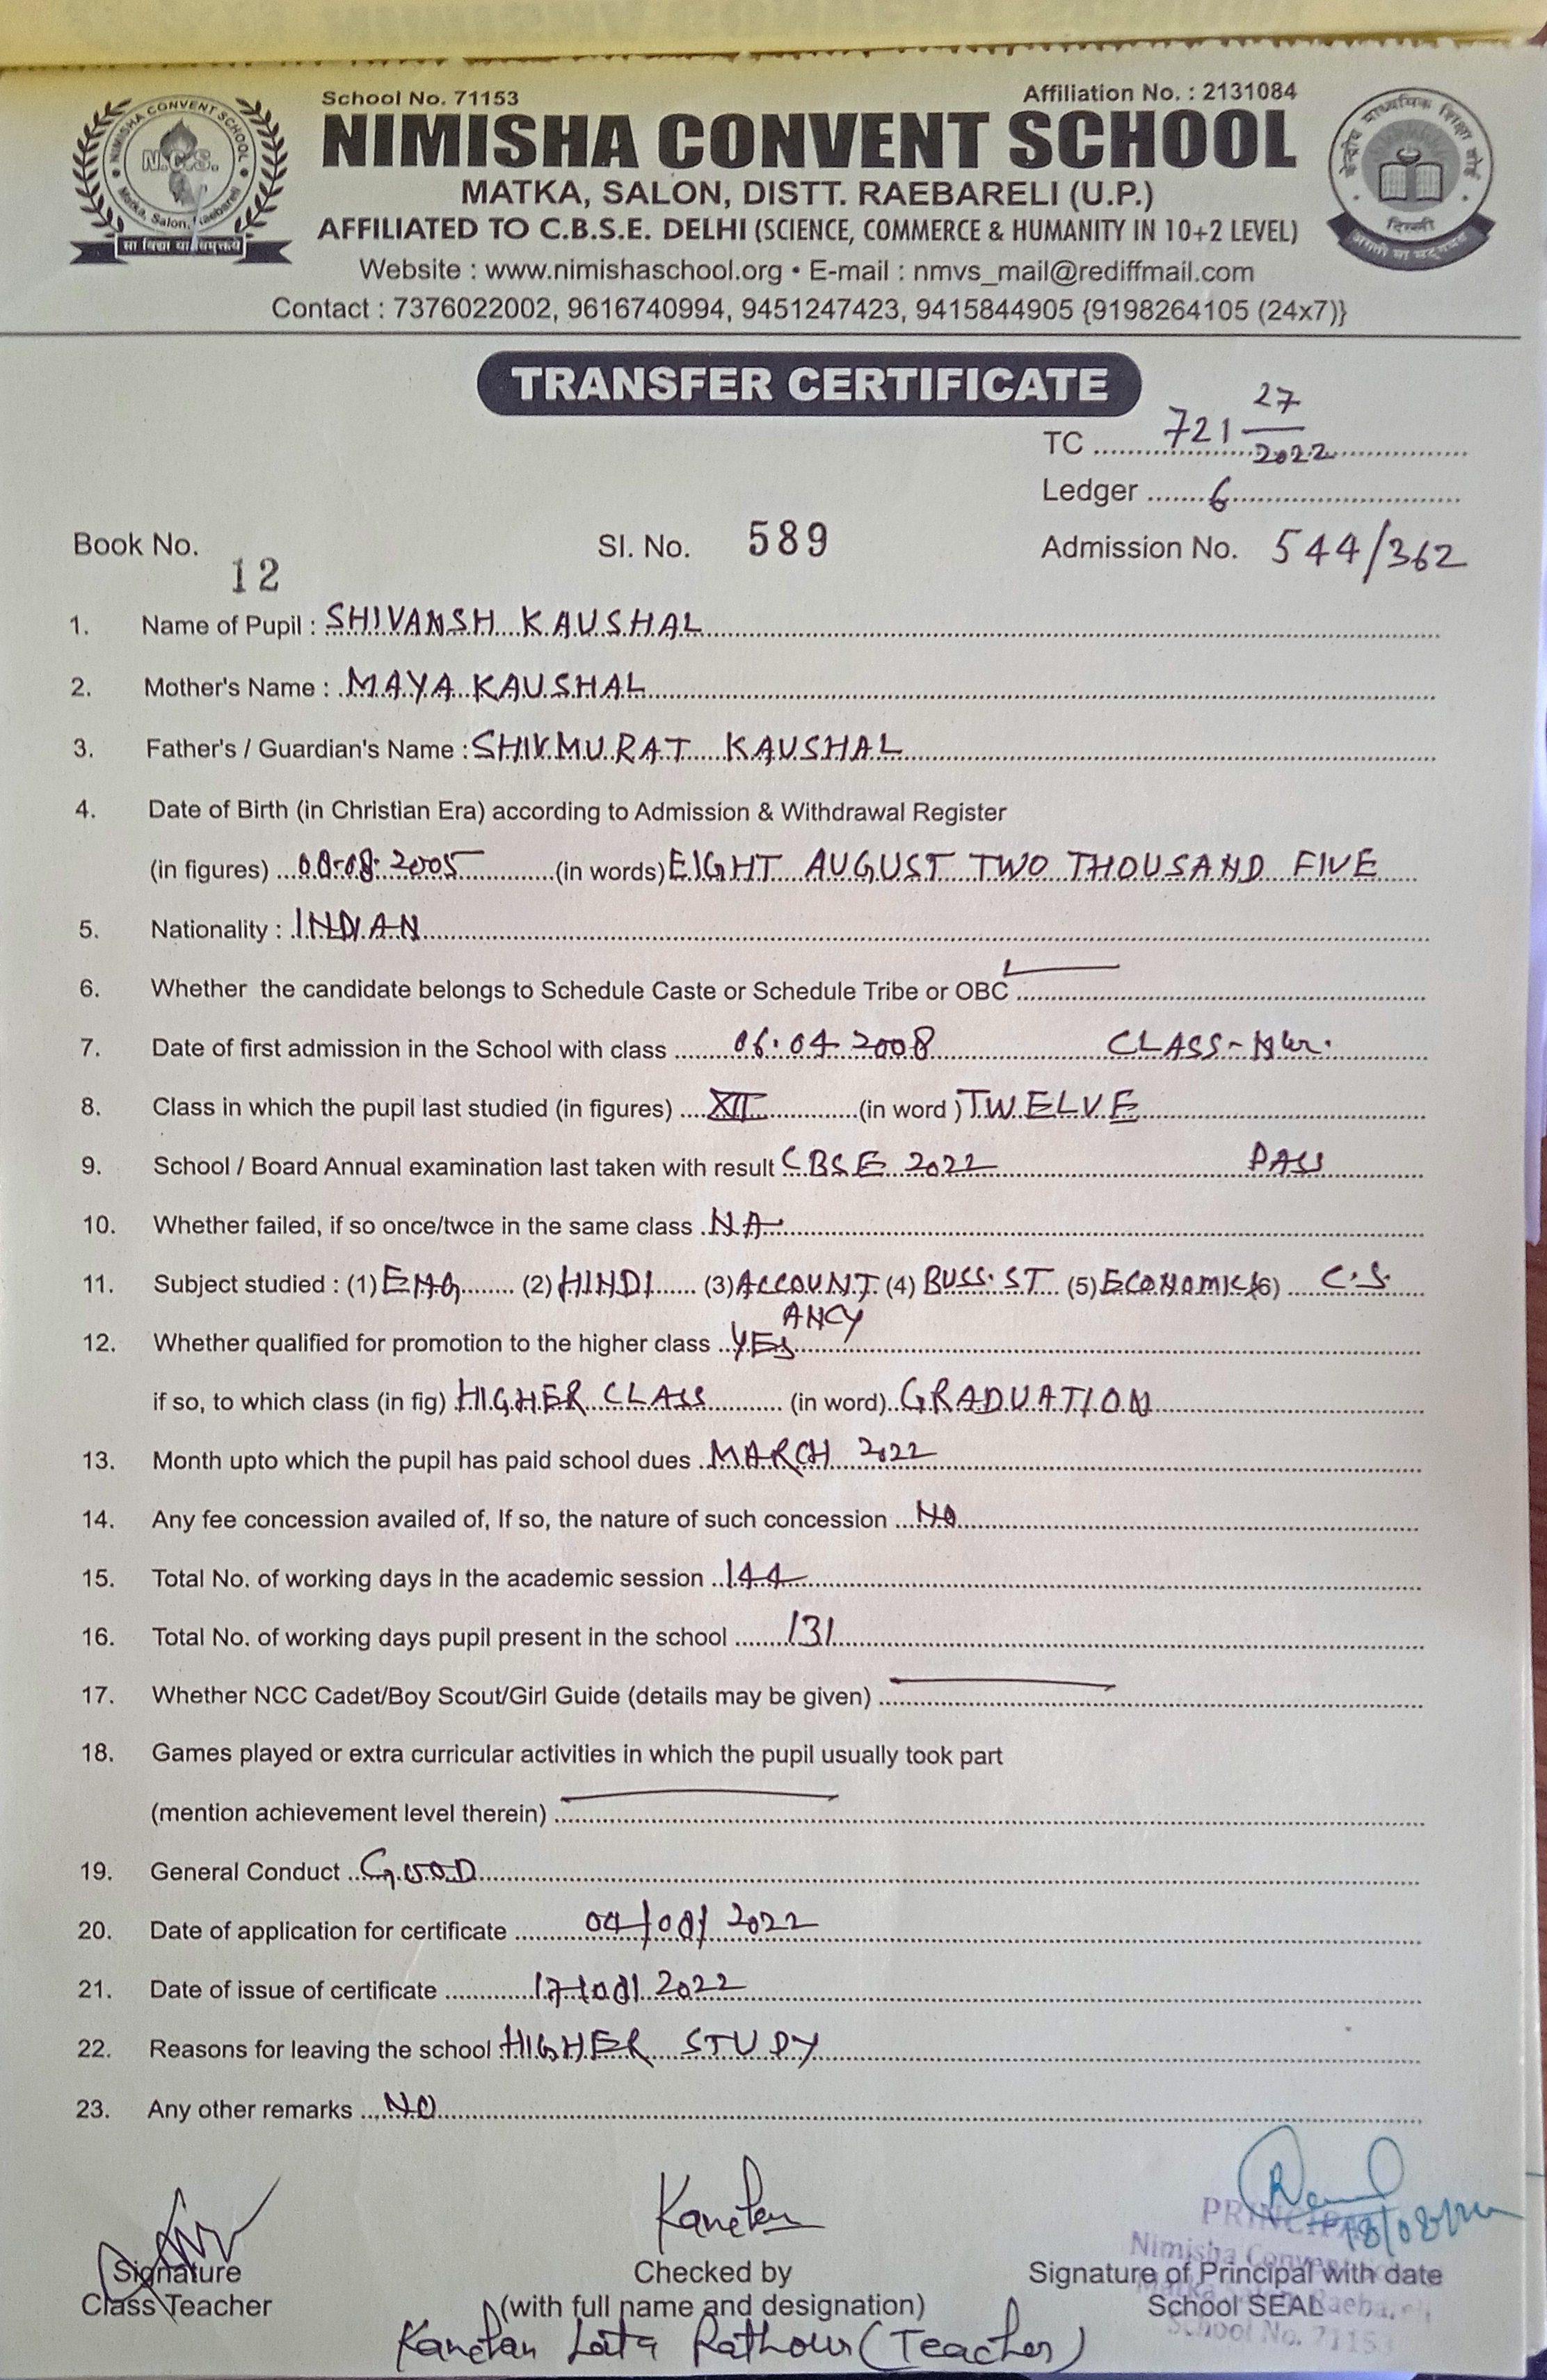 School No. 71153
Affiliation No. : 2131084
NIMISHA CONVENT SCHOOL
MATKA, SALON, DISTT. RAEBARELI (U.P.)
AFFILIATED TO C.B.S.E. DELHI (SCIENCE, COMMERCE & HUMANITY IN 10+2 LEVEL)
Website : www.nimishaschool.org • E-mail : nmvs_mail@rediffmail.com
Contact : 7376022002, 9616740994, 9451247423, 9415844905 {9198264105 (24x7)}
NIMISHA CONVENT SCHOOL
N.C.S.
Matka, Salon, Raebareli
सा विद्या या विमुक्तये
केन्द्रीय माध्यमिक शिक्षा बोर्ड
दिल्ली
असतो मा सद्गमय
TRANSFER CERTIFICATE
TC 721 27/2022
Ledger 6
Book No. 12 Sl. No. 589 Admission No. 544/362
1. Name of Pupil : SHIVANSH KAUSHAL
2. Mother's Name : MAYA KAUSHAL
3. Father's / Guardian's Name : SHIVMURAT KAUSHAL
4. Date of Birth (in Christian Era) according to Admission & Withdrawal Register
(in figures) 08-08-2005 (in words) EIGHT AUGUST TWO THOUSAND FIVE
5. Nationality : INDIAN
6. Whether the candidate belongs to Schedule Caste or Schedule Tribe or OBC
7. Date of first admission in the School with class 06.04.2008 CLASS-Nur.
8. Class in which the pupil last studied (in figures) XII (in word ) TWELVE
9. School / Board Annual examination last taken with result CBSE 2022 PASS
10. Whether failed, if so once/twce in the same class NA
11. Subject studied : (1) ENG (2) HINDI (3) ACCOUNT (4) BUSS. ST (5) ECONOMICS (6) C.S.
ANCY
12. Whether qualified for promotion to the higher class YES
if so, to which class (in fig) HIGHER CLASS (in word) GRADUATION
13. Month upto which the pupil has paid school dues MARCH 2022
14. Any fee concession availed of, If so, the nature of such concession NO
15. Total No. of working days in the academic session 144
16. Total No. of working days pupil present in the school 131
17. Whether NCC Cadet/Boy Scout/Girl Guide (details may be given)
18. Games played or extra curricular activities in which the pupil usually took part
(mention achievement level therein)
19. General Conduct GOOD
20. Date of application for certificate 04/08/2022
21. Date of issue of certificate 17/08/2022
22. Reasons for leaving the school HIGHER STUDY
23. Any other remarks NO
Kanchan
18/08/2022
PRINCIPAL
Nimisha Convent School
Matka Salon, Raebareli
School No. 71153
Signature
Class Teacher
Checked by
(with full name and designation)
Signature of Principal with date
School SEAL
Kanchan Lata Rathour (Teacher)